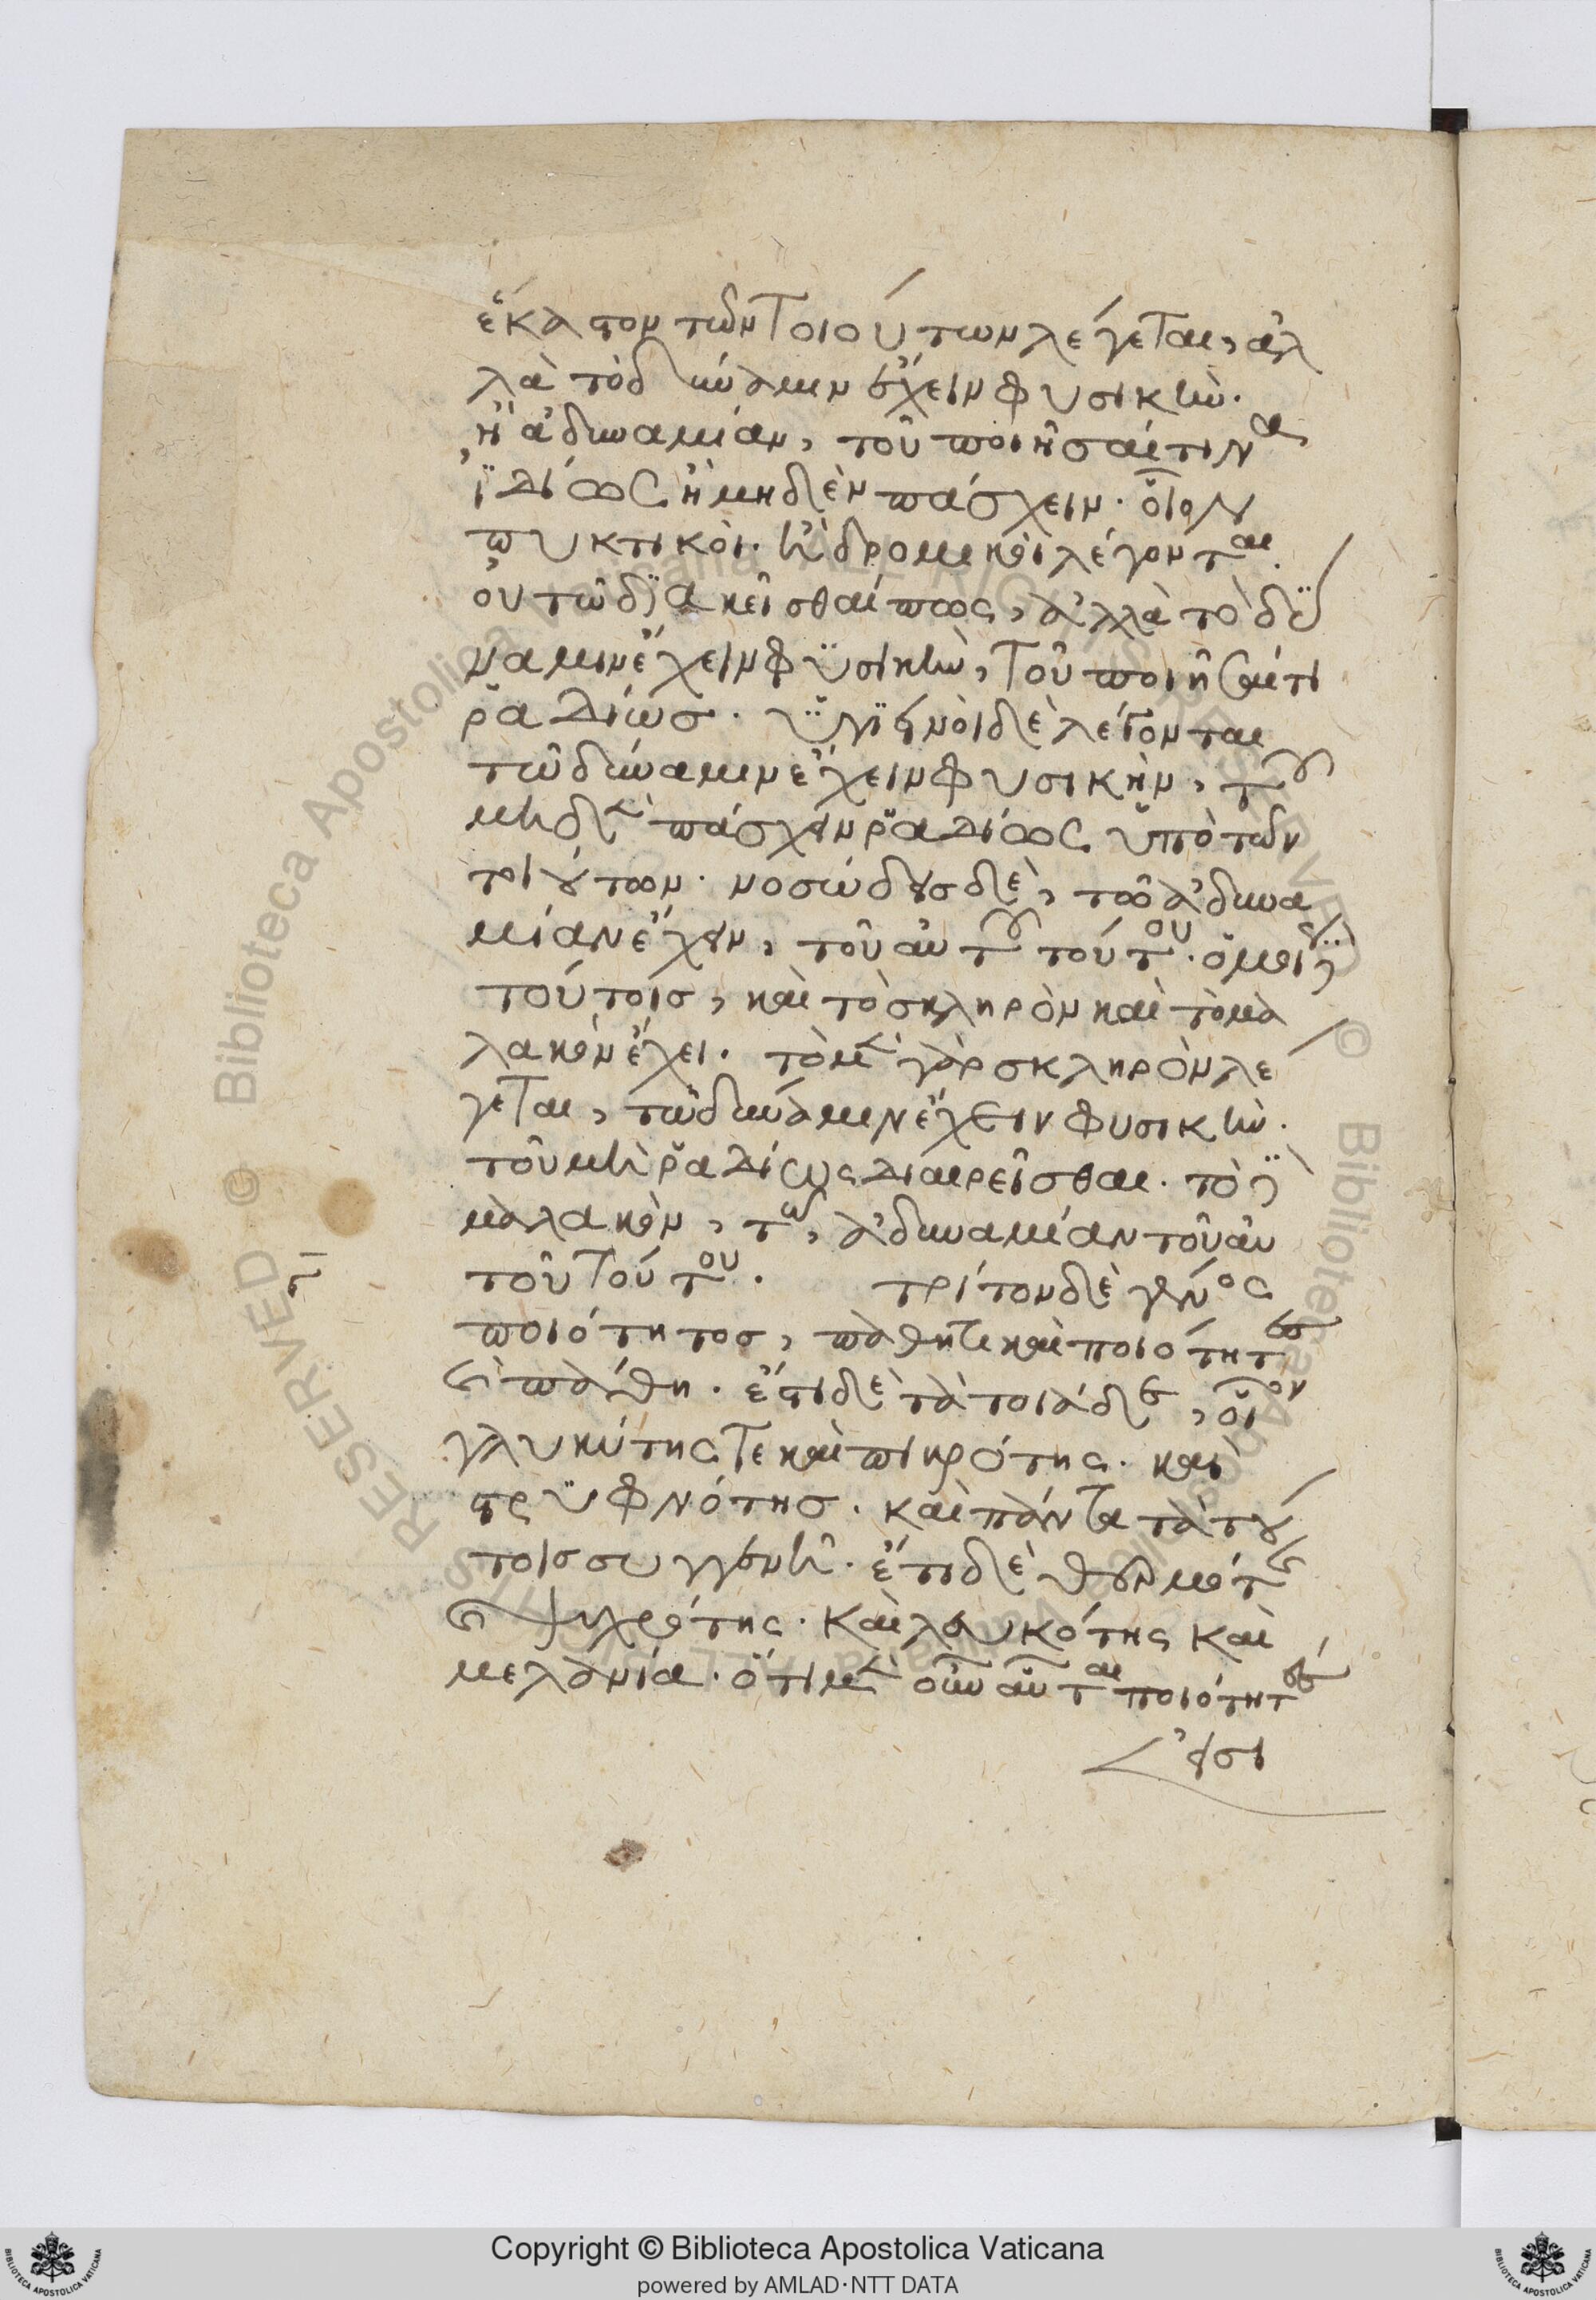 ἕκαστον τῶν τοιούτων λέγεται, ἀλ
λὰ τὸ δύναμιν ἔχειν φυσικὴν.
ἢ ἀδυναμίαν, τοῦ ποιῆσαί τινα
ῥαδίως ἢ μηδὲν πάσχειν. οἷον
πυκτικοὶ. ἢ δρομικοὶ λέγονται.
οὐ τῶ διακεῖσθαί πως, ἀλλὰ τὸ δύ
ναμιν ἔχειν φυσικὴν, τοῦ ποιῆσαί τι
ῥαδίως. ὑγιεινοὶ δὲ λέγονται
τῶ δύναμιν ἔχειν φυσικὴν, τοῦ
μηδὲν πάσχειν ῥαδίως ὑπὸ τῶν
τυχόντων. νοσώδεις δὲ, τῶ ἀδυνα
μίαν ἔχειν, τοῦ αὐτοῦ τούτου. ὁμοίως δὲ
τούτοις, καὶ τὸ σκληρὸν καὶ τὸ μα
λακὸν ἔχει. τὸ μὲν γὰρ σκληρὸν λέ
γεται, τῶ δύναμιν ἔχειν φυσικὴν.
τοῦ μὴ ῥαδίως διαιρεῖσθαι. τὸ δὲ
μαλακὸν, τῶ, ἀδυναμίαν τοῦ αὐ
τοῦ τούτου. τρίτον δὲ γένος
ποιότητος, παθητικαὶ ποιότητες
καὶ πάθη. ἔστι δὲ τὰ τοιάδε, οἷον
γλυκύτης τε καὶ πικρότης. καὶ
στρυφνότης. καὶ πάντα τὰ τού
τοις συγγενῆ. ἔτι δὲ θερμότης
καὶ ψυχρότης. καὶ λευκότης καὶ
μελανία. ὅτι μὲν οὖν αὗται ποιότητες
εἰσι
Copyright © Biblioteca Apostolica Vaticana
powered by AMLAD·NTT DATA